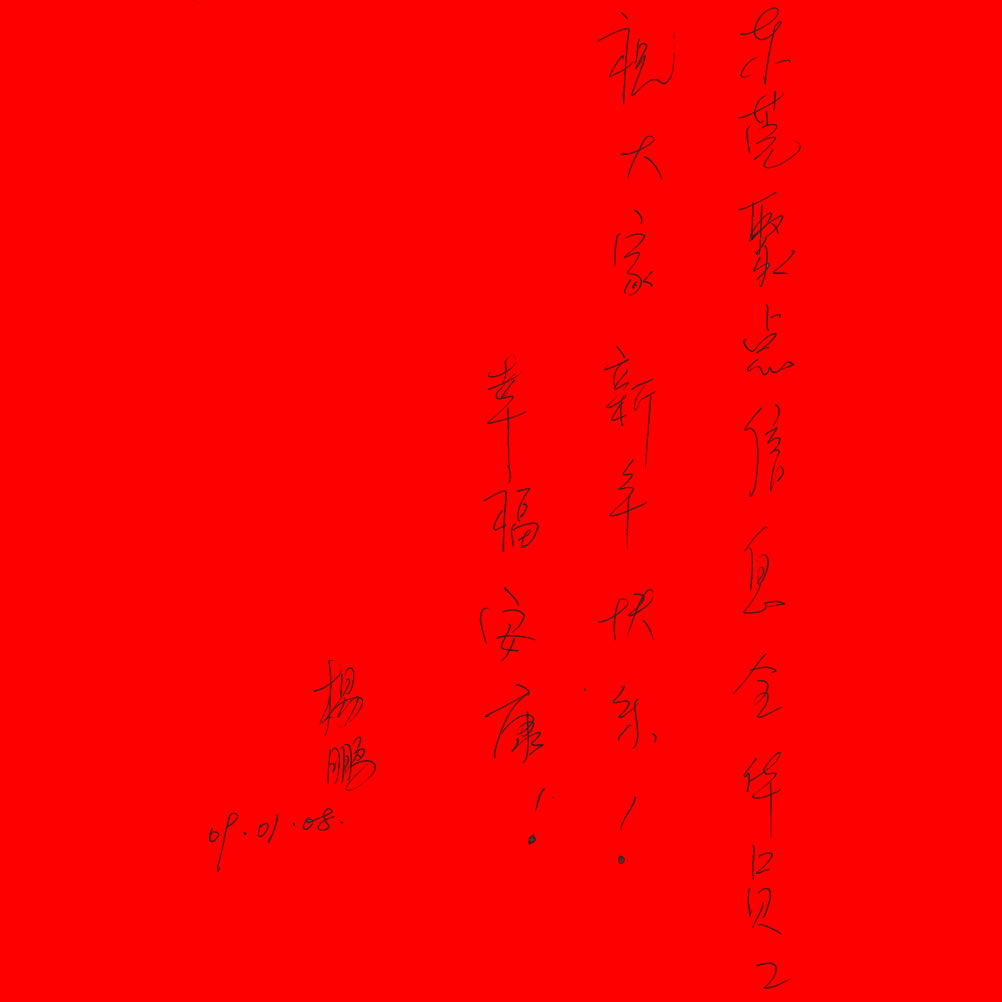 东莞聚点信息全体员工
祝大家新年快乐!
幸福安康!
杨鹏
09.01.08.